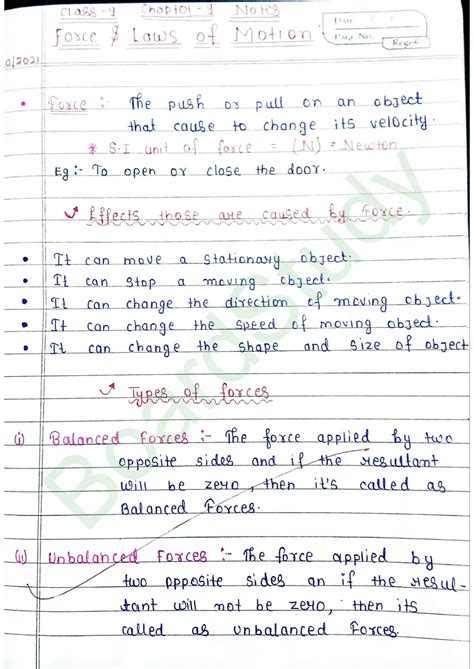 Class-9 Chapter-9 Notes
Force & Laws of Motion
Date / /
Page No.
0/2021
• Force :- The push or pull on an object
that cause to change its velocity.
* S.I unit of force = (N) = Newton
Eg :- To open or close the door.
Effects those are caused by Force.
• It can move a stationary object.
• It can stop a moving object.
• It can change the direction of moving object.
• It can change the speed of moving object.
• It can change the shape and size of object
Types of forces
(i) Balanced Forces :- The force applied by two
opposite sides and if the resultant
will be zero, then it's called as
Balanced Forces.
(ii) Unbalanced Forces :- The force applied by
two opposite sides an if the resul-
tant will not be zero, then its
called as unbalanced Forces.
BoardStudy